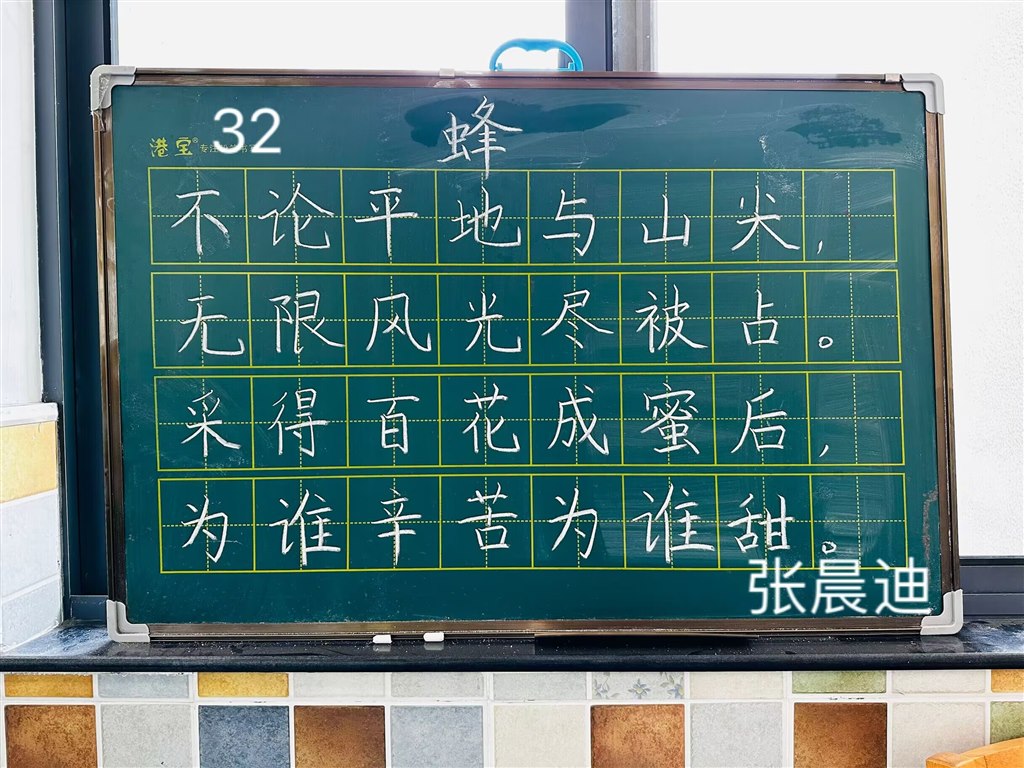 32
蜂
港宝
不论平地与山尖，
无限风光尽被占。
采得百花成蜜后，
为谁辛苦为谁甜。
张晨迪